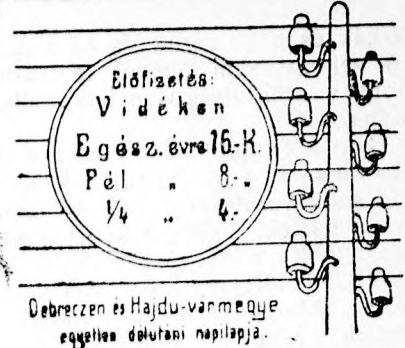 Előfizetés:
Vidéken
Egész. évre 16.-K.
Fél „ 8.- „
1/4 „ 4.-
Debreczen és Hajdu-vármegye
egyetlen délutáni napilapja.